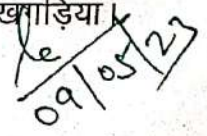 खगाड़िया।
09/05/23